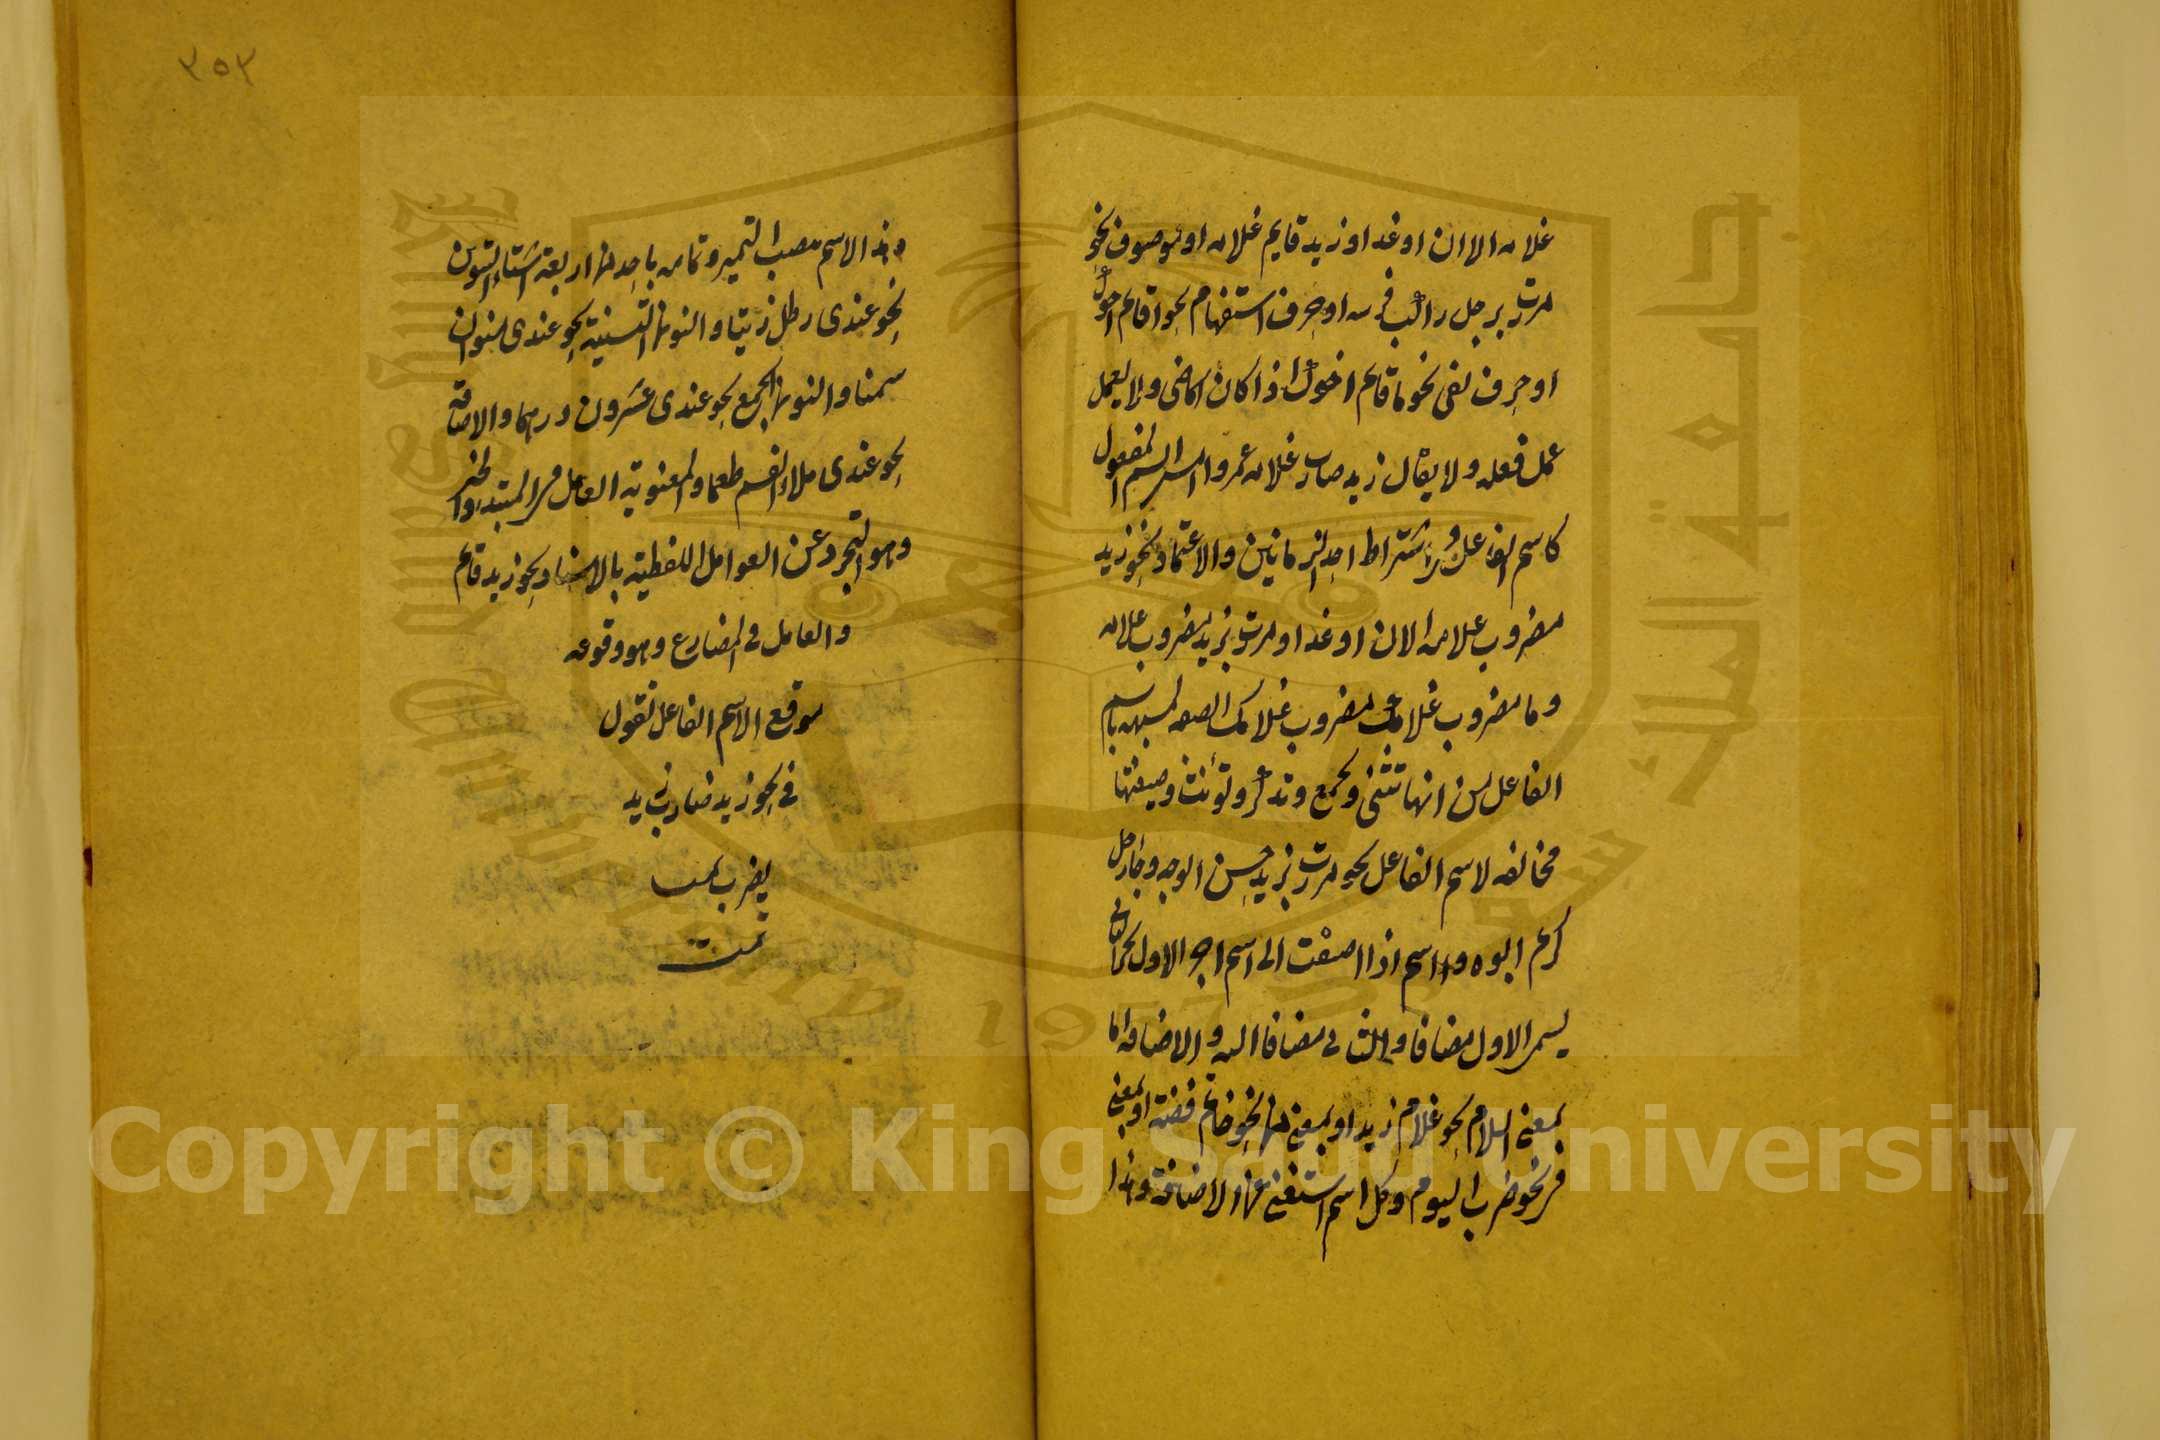 غلامه الاان اوغدا وزيد قايم غلامه او موصوف نحو
مررت برجل راكب فرسه او حرف استفهام نحو اقايم اخوك
او حرف نفى نحو ما قايم اخوك اذا كان ولا يعمل
عمل فعله ولا يقال زيد ضارب غلامه عمروا امس اسم المفعول
كاسم الفاعل و اشتراط احد الزمانين والاعتماد نحو زيد
مضروب علامه الان اوغدا ومررت بزيد مضروب علامه
وما مضروب غلامك مضروب غلامك الصفه المشبهه باسم
الفاعل انها تثنى وتجمع وتذكر وتؤنث وصيغتها
مخالفه لاسم الفاعل نحو مررت بزيد حسن الوجه وجاء رجل
كريم ابوه و اسم اذا اضفت الى اسم اجر الاول الثاني
يسمى الاول مضافا والثانى مضافا اليه والاضافه اما
بمعنى اللام نحو غلام زيد او بمعنى من نحو خاتم فضة او بمعنى
فى نحو ضرب اليوم وكل اسم استغنى عن الاضافة وهذا
٣٥٣
وهذا الاسم ينصب التميز وتمامه باحد من اربعة اشياء التنوين
نحو عندى رطل زيتا والنون التثنية نحو عندى منوان
سمنا والنون الجمع نحو عندى عشرون درهما والاضافة
نحو عندى ملاء طعاما والمعنوية العامل فى المبتداء والخبر
وهو التجرد عن العوامل اللفظية بالاسناد نحو زيد قايم
والعامل فى المضارع وهو وقوعه
موقع الاسم الفاعل تقول
فى نحو زيد ضارب زيد
يضرب تمت
تمت
جامعة الملك سعود
King Saud University
1957
Copyright © King Saud University